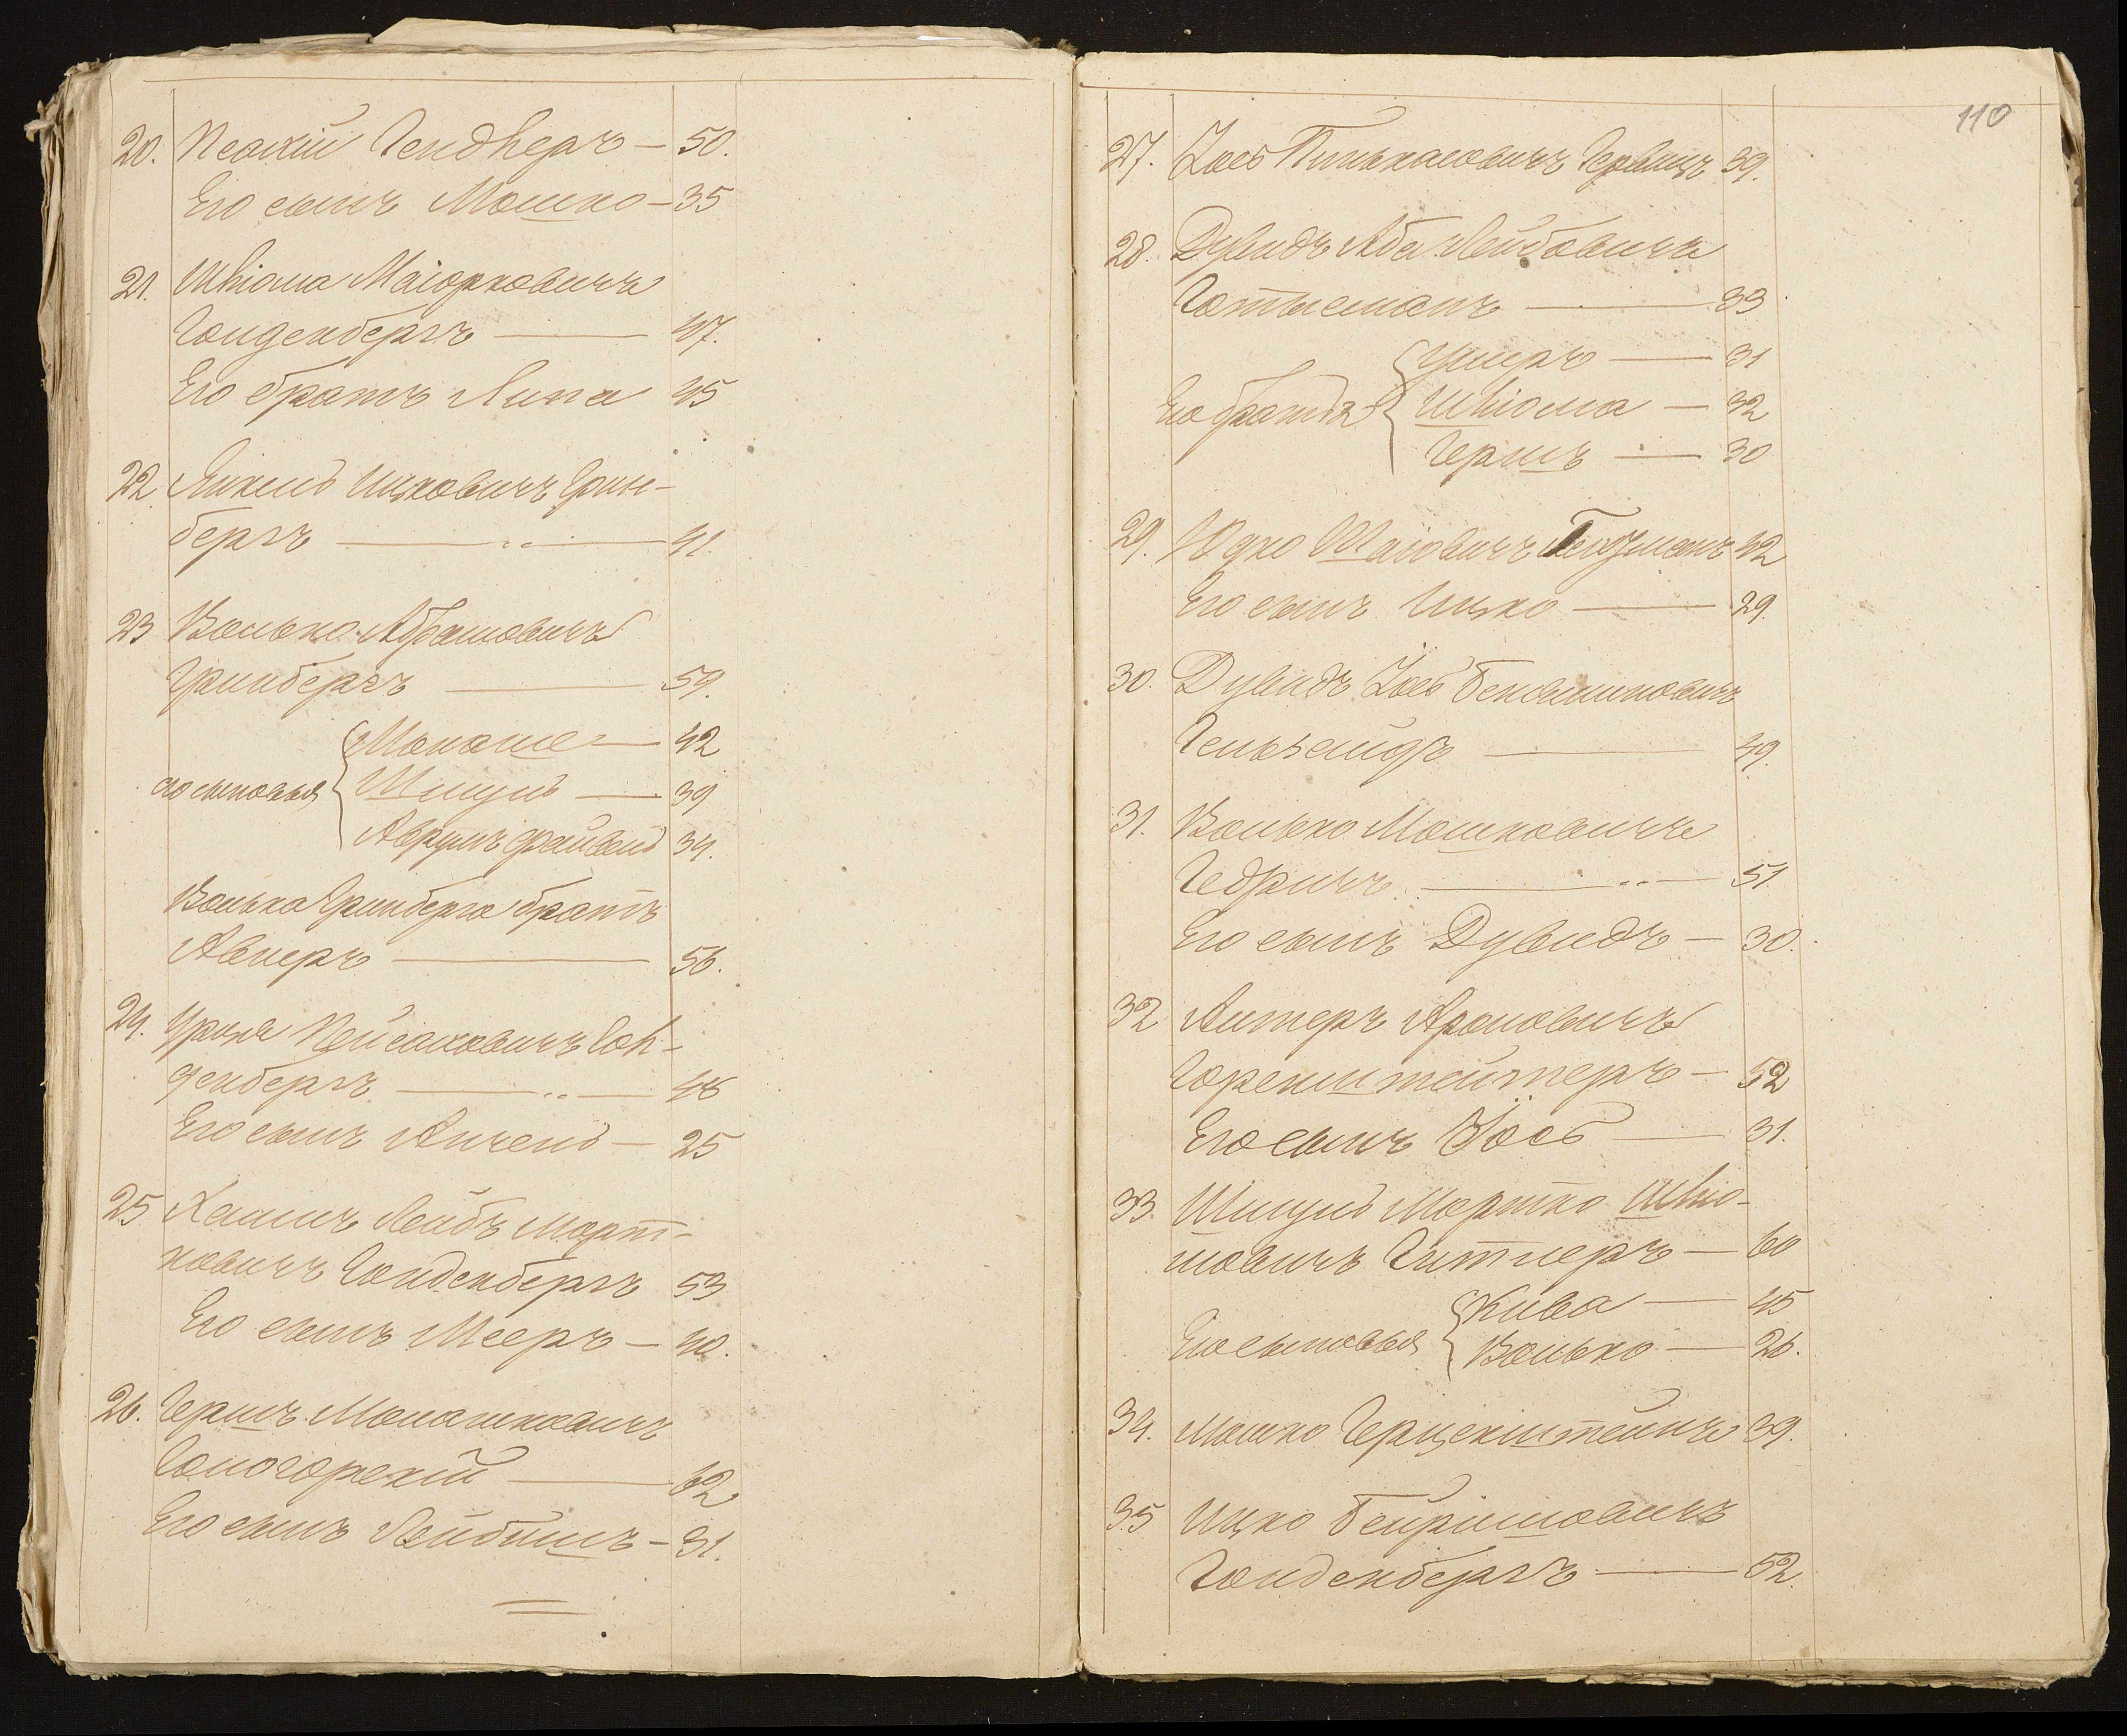 20. Псахій Гендлеръ — 50.
Его сынъ Мошко — 35
21. Шлiома Маiорковичъ
Гольденбергъ — 47.
Его братъ Липа 45
22. Янкель Ицковичъ Грин-
бергъ — 41.
23 Волько Абрамовичъ
Гринбергъ — 59.
его сыновья { Монаше — 42
Шмуль — 39
Аврумъ Файвель 34.
Волька Гринберга братъ
Авнеръ — 56.
24. Пейсаховичъ Гол-
денбергъ — 48
Его сынъ Анчель — 25
25. Хаимъ Лейбъ Морт-
ковичъ Гольденбергъ 53
Его сынъ Мееръ — 40.
26. Гершъ Монашковичъ
Гологорскій — 62
Его сынъ Лейбишъ — 31.
110
27. Iось Пинькасовичъ 39.
28. Дувидъ Аба Лейбовичъ
Готтесманъ — 33
Его братья { Ушеръ — 31
Шлiома — 32
Гершъ — 30
29. Юдко Шаiовичъ 42
Его сынъ Ицко — 29.
30. Дувидъ Iось Беньяминовичъ
Гельзейдъ — 49.
31. Волько Мошковичъ
Гедричъ — 51.
Его сынъ Дувидъ — 30.
32 Алтеръ Ароновичъ
Горенштейтеръ — 52
Его сынъ Iось — 31.
33. Шмуль Мортко Шлiо-
мовичъ Гитлеръ — 60
Его сыновья { Кива — 45
Волько — 26.
34. Мошко Герценштейнъ 39.
35 Ицко Бейришовичъ
Гольденбергъ — 52.